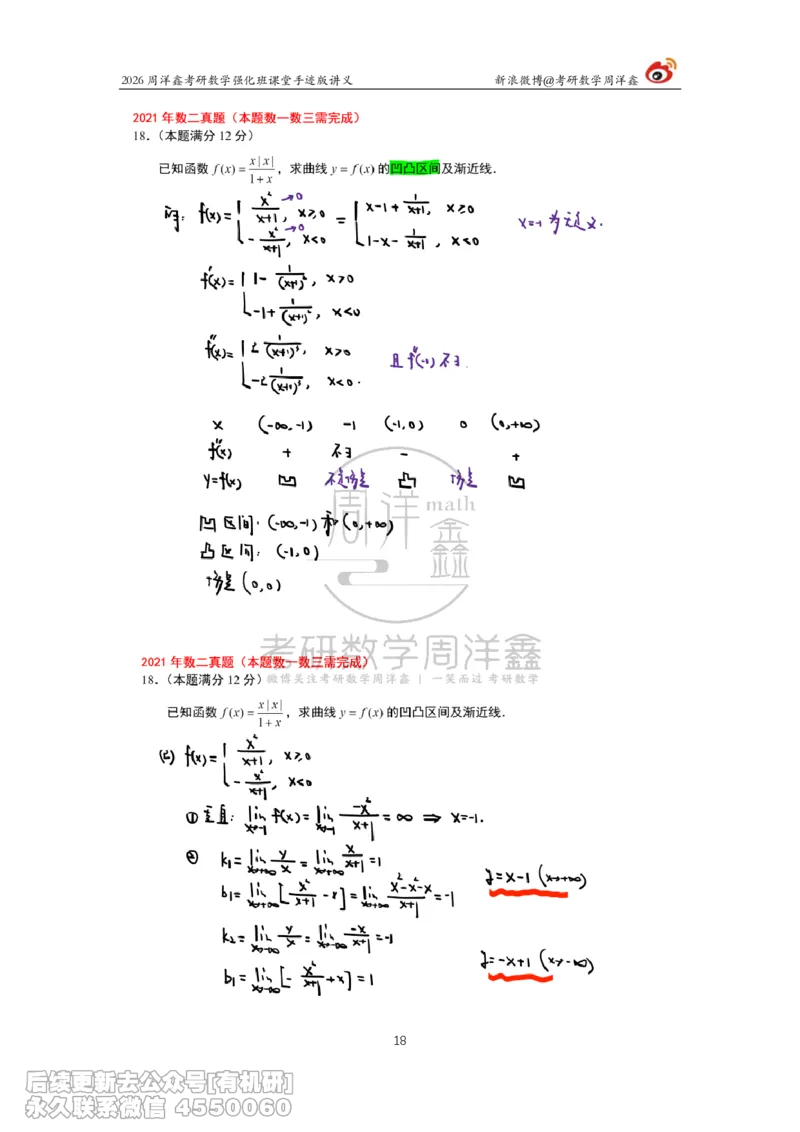 2026 周洋鑫考研数学强化班课堂手迹版讲义 新浪微博@考研数学周洋鑫
2021 年数二真题（本题数一数三需完成）
18．（本题满分 12 分）
已知函数 f(x) = x|x| / (1+x)，求曲线 y = f(x) 的凹凸区间及渐近线．
f(x) = { x²/(x+1), x≥0 = { x-1+1/(x+1), x≥0 x=-1 为无定义.
-x²/(x+1), x<0 1-x-1/(x+1), x<0
f'(x) = { 1 - 1/(x+1)², x>0
-1 + 1/(x+1)², x<0
f''(x) = { 2 1/(x+1)³, x>0 且 f''(-1) 不∃.
-2 1/(x+1)³, x<0.
x (-∞,-1) -1 (-1,0) 0 (0,+∞)
f''(x) + 不∃ - +
y=f(x) 凹 不是拐点 凸 拐点 凹
凹区间: (-∞,-1) 和 (0,+∞)
凸区间: (-1,0)
拐点 (0,0)
周洋鑫 math
考研数学周洋鑫
2021 年数二真题（本题数一数三需完成）
18．（本题满分 12 分） 微博关注考研数学周洋鑫 | 一笑而过 考研数学
已知函数 f(x) = x|x| / (1+x)，求曲线 y = f(x) 的凹凸区间及渐近线．
f(x) = { x²/(x+1), x≥0
-x²/(x+1), x<0
① 垂直: lim x→-1 f(x) = lim x→-1 -x²/(x+1) = ∞ ⇒ x=-1.
② k₁ = lim x→+∞ y/x = lim x→+∞ x/(x+1) = 1
b₁ = lim x→+∞ [x²/(x+1) - x] = lim x→+∞ (x²-x²-x)/(x+1) = -1 y=x-1 (x→+∞)
k₂ = lim x→-∞ y/x = lim x→-∞ -x/(x+1) = -1
b₁ = lim x→-∞ [-x²/(x+1) + x] = 1 y=-x+1 (x→-∞)
18
后续更新去公众号[有机研]
永久联系微信 4550060